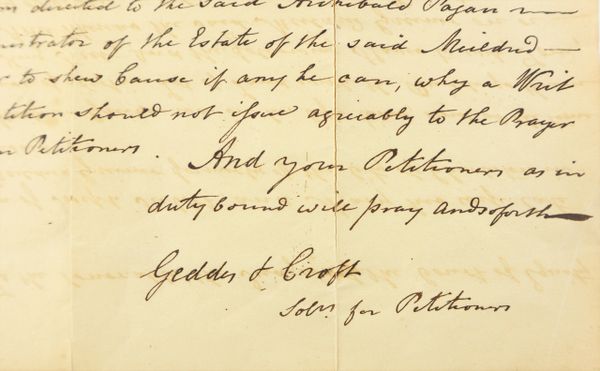 directed to the said Archibald Pagan
nistrator of the Estate of the said Meildred —
to shew Cause if any he can, why a Writ
tition should not issue agreeably to the Prayer
Petitioners.
And your Petitioners as in
duty bound will pray and so forth —
Geddes & Croft
Solrs. for Petitioners